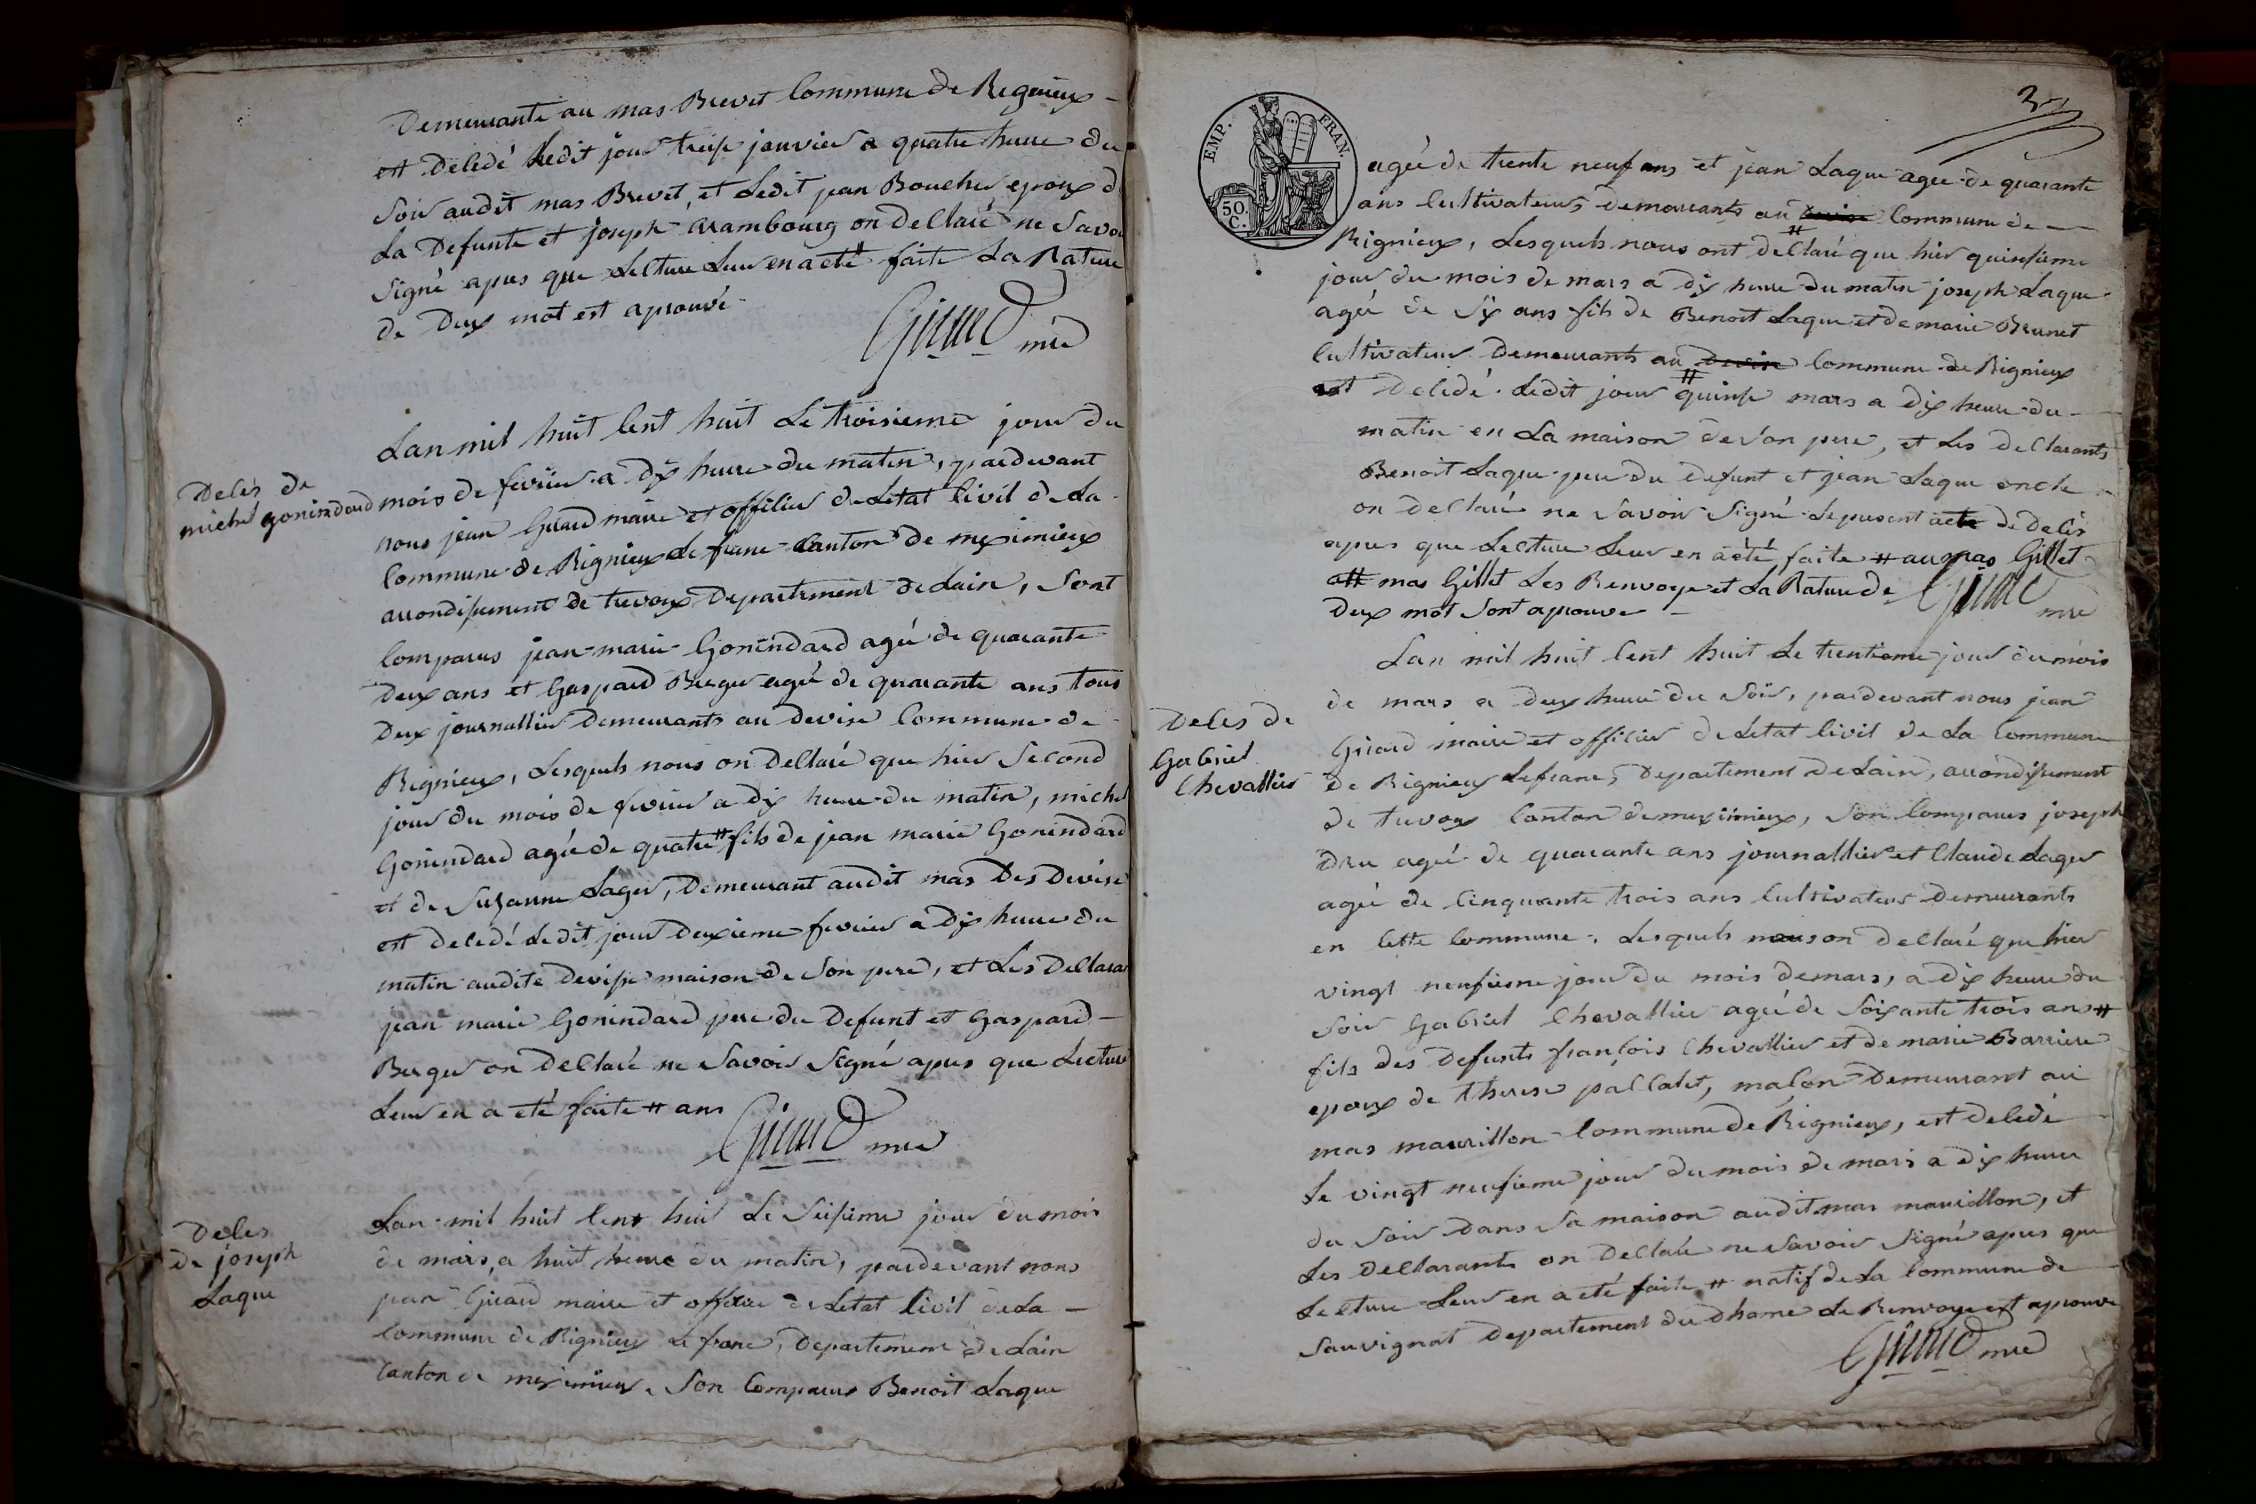 Demeurante au mas Brevet Commune de Rignieux -
est Decedé Ledit jour treise janvier a quatre heure du
Soir audit mas Brevet, et Ledit jean Boucher epoux de
La Defunte et joseph arambourg on Declaré ne Savoi
Signé apres que Lecture Leur en a eté faite La Rature
de Deux mot est aprouvé
Girard mre
Deces de
michel gonindard
Lan mil huit Cent huit Le troisieme jour du
mois de fevrier a Dix heure du matin, pardevant
nous jean Girard maire et officier de Letat Civil de La
Commune de Rignieux Le franc Canton de meximieux
arrondissement de trevoux Departement de Lain, Sont
Comparus jean marie Gonindard agé de quarante
Deux ans et Gaspard Berger agé de quarante ans tous
Deux journallier Demeurants au Devise Commune de
Rignieux, Lesquels nous on Declaré que hier Second
jour du mois de fevrier a Dix heure du matin, michel
Gonindard agé de quatre # fils de jean marie Gonindard
et de Suzanne Lager, Demeurant audit mas Des Devise
est Decedé Ledit jour Deuxieme fevrier a Dix heure du
matin audite Devise maison de Son pere, et Les Declara
jean marie Gonindard pere du Defunt et Gaspard -
Berger on Declaré ne Savoir Signé apres que Lecture
Leur en a eté faite # ans
Girard mre
Deces
de joseph
Laque
Lan mil huit Cent huit Le Seisieme jour du mois
de mars, a huit heure du matin, pardevant nous
jean Girard maire et officier de Letat Civil de La -
Commune de Rignieux Le franc, Departement de Lain
Canton de meximieux. Son Comparus Benoit Laque
3
EMP. FRAN.
50.
C.
agé de trente neuf ans et jean Laque agee de quarante
ans Cultivateurs demeurants au Devise Commune de -
#
Rignieux, Lesquels nous ont Declaré que hier quinsieme
jour du mois de mars a dix heure du matin joseph Laque
agé de Six ans fils de Benoit Laque et de marie Brunet
Cultivateur Demeurants au Devise Commune de Rignieux
#
est Decedé Ledit jour quinse mars a Dix heure du -
matin en La maison de Son pere, et Les Declarants
Benoit Laque pere du Defunt et jean Laque oncle
on Declaré ne Savoir Signé Le present acte de Deces
apres que Lecture Leur en a eté faite # au mas Gillet
# mas Gillet Les Renvoye et La Rature de
Deux mot Sont aprouve -
Girard mre
Deces de
Gabriel
Chevallier
Lan mil huit Cent huit Le trentieme jour du mois
de mars a deux heure du Soir, pardevant nous jean
Girard maire et officier de Letat Civil de La Commune
de Rignieux Lefranc, Departement de Lain, arrondissement
de trevoux Canton de meximieux, Son Comparus joseph
Dru agé de quarante ans journallier et Claude Lager
agé de Cinquante trois ans Cultivateur Demeurants
en Cette Commune. Lesquels nous on declaré que hier
vingt neufieme jour du mois de mars, a dix heure du
Soir Gabriel Chevallier agé de Soixante trois ans #
fils des Defunts francois Chevallier et de marie Barriere
epoux de therese pallalet, maçon Demeurant au
mas maurillon Commune de Rignieux, est decedé
Le vingt neufieme jour du mois de mars a dix heure
du Soir Dans Sa maison audit mas maurillon, et
Les Declarants on Declaré ne Savoir Signé apres que
Lecture Leur en a eté faite # natif de La Commune de
Sauvignat Departement du Dhome Le Renvoye est aprouve
Girard mre